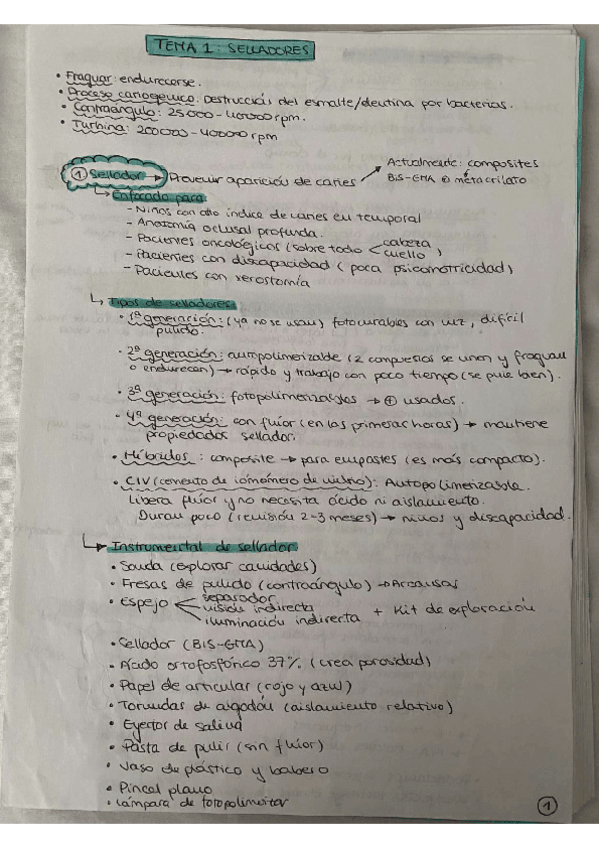 TEMA 1: SELLADORES
• Fraguar: endurecerse.
• Proceso cariogénico: Destrucción del esmalte/dentina por bacterias.
• Contraángulo: 25000 - 40000 rpm.
• Turbina: 200000 - 400000 rpm
① Sellador → Prevenir aparición de caries → Actualmente: composites
BIS-GMA ⊕ metacrilato
↳ Enfocado para:
- Niños con alto índice de caries en temporal
- Anatomía oclusal profunda.
- Pacientes oncológicos (sobre todo < cabeza
cuello )
- Pacientes con discapacidad (poca psicomotricidad)
- Pacientes con xerostomía
↳ Tipos de selladores:
• 1ª generación: (ya no se usan) fotocurables con luz, difícil
pulido.
• 2ª generación: autopolimerizable (2 compuestos se unen y fraguan
o endurecen) → rápido y trabajo con poco tiempo (se pule bien).
• 3ª generación: fotopolimerizables → ⊕ usados.
• 4ª generación: con flúor (en las primeras horas) → mantiene
propiedades sellador.
• Híbridos: composite → para empastes (es más compacto).
• CIV (cemento de ionómero de vidrio): Autopolimerizable.
Libera flúor y no necesita ácido ni aislamiento.
Duran poco (revisión 2-3 meses) → niños y discapacidad.
↳ Instrumental de sellador
• Sonda (explorar cavidades)
• Fresas de pulido (contraángulo) → Arcansas
• Espejo < separador
visión indirecta
iluminación indirecta + Kit de exploración
• Sellador (BIS-GMA)
• Ácido ortofosfórico 37% (crea porosidad)
• Papel de articular (rojo y azul)
• Torundas de algodón (aislamiento relativo)
• Eyector de saliva
• Pasta de pulir (sin flúor)
• Vaso de plástico y babero
• Pincel plano
• Lámpara de fotopolimerizar
1